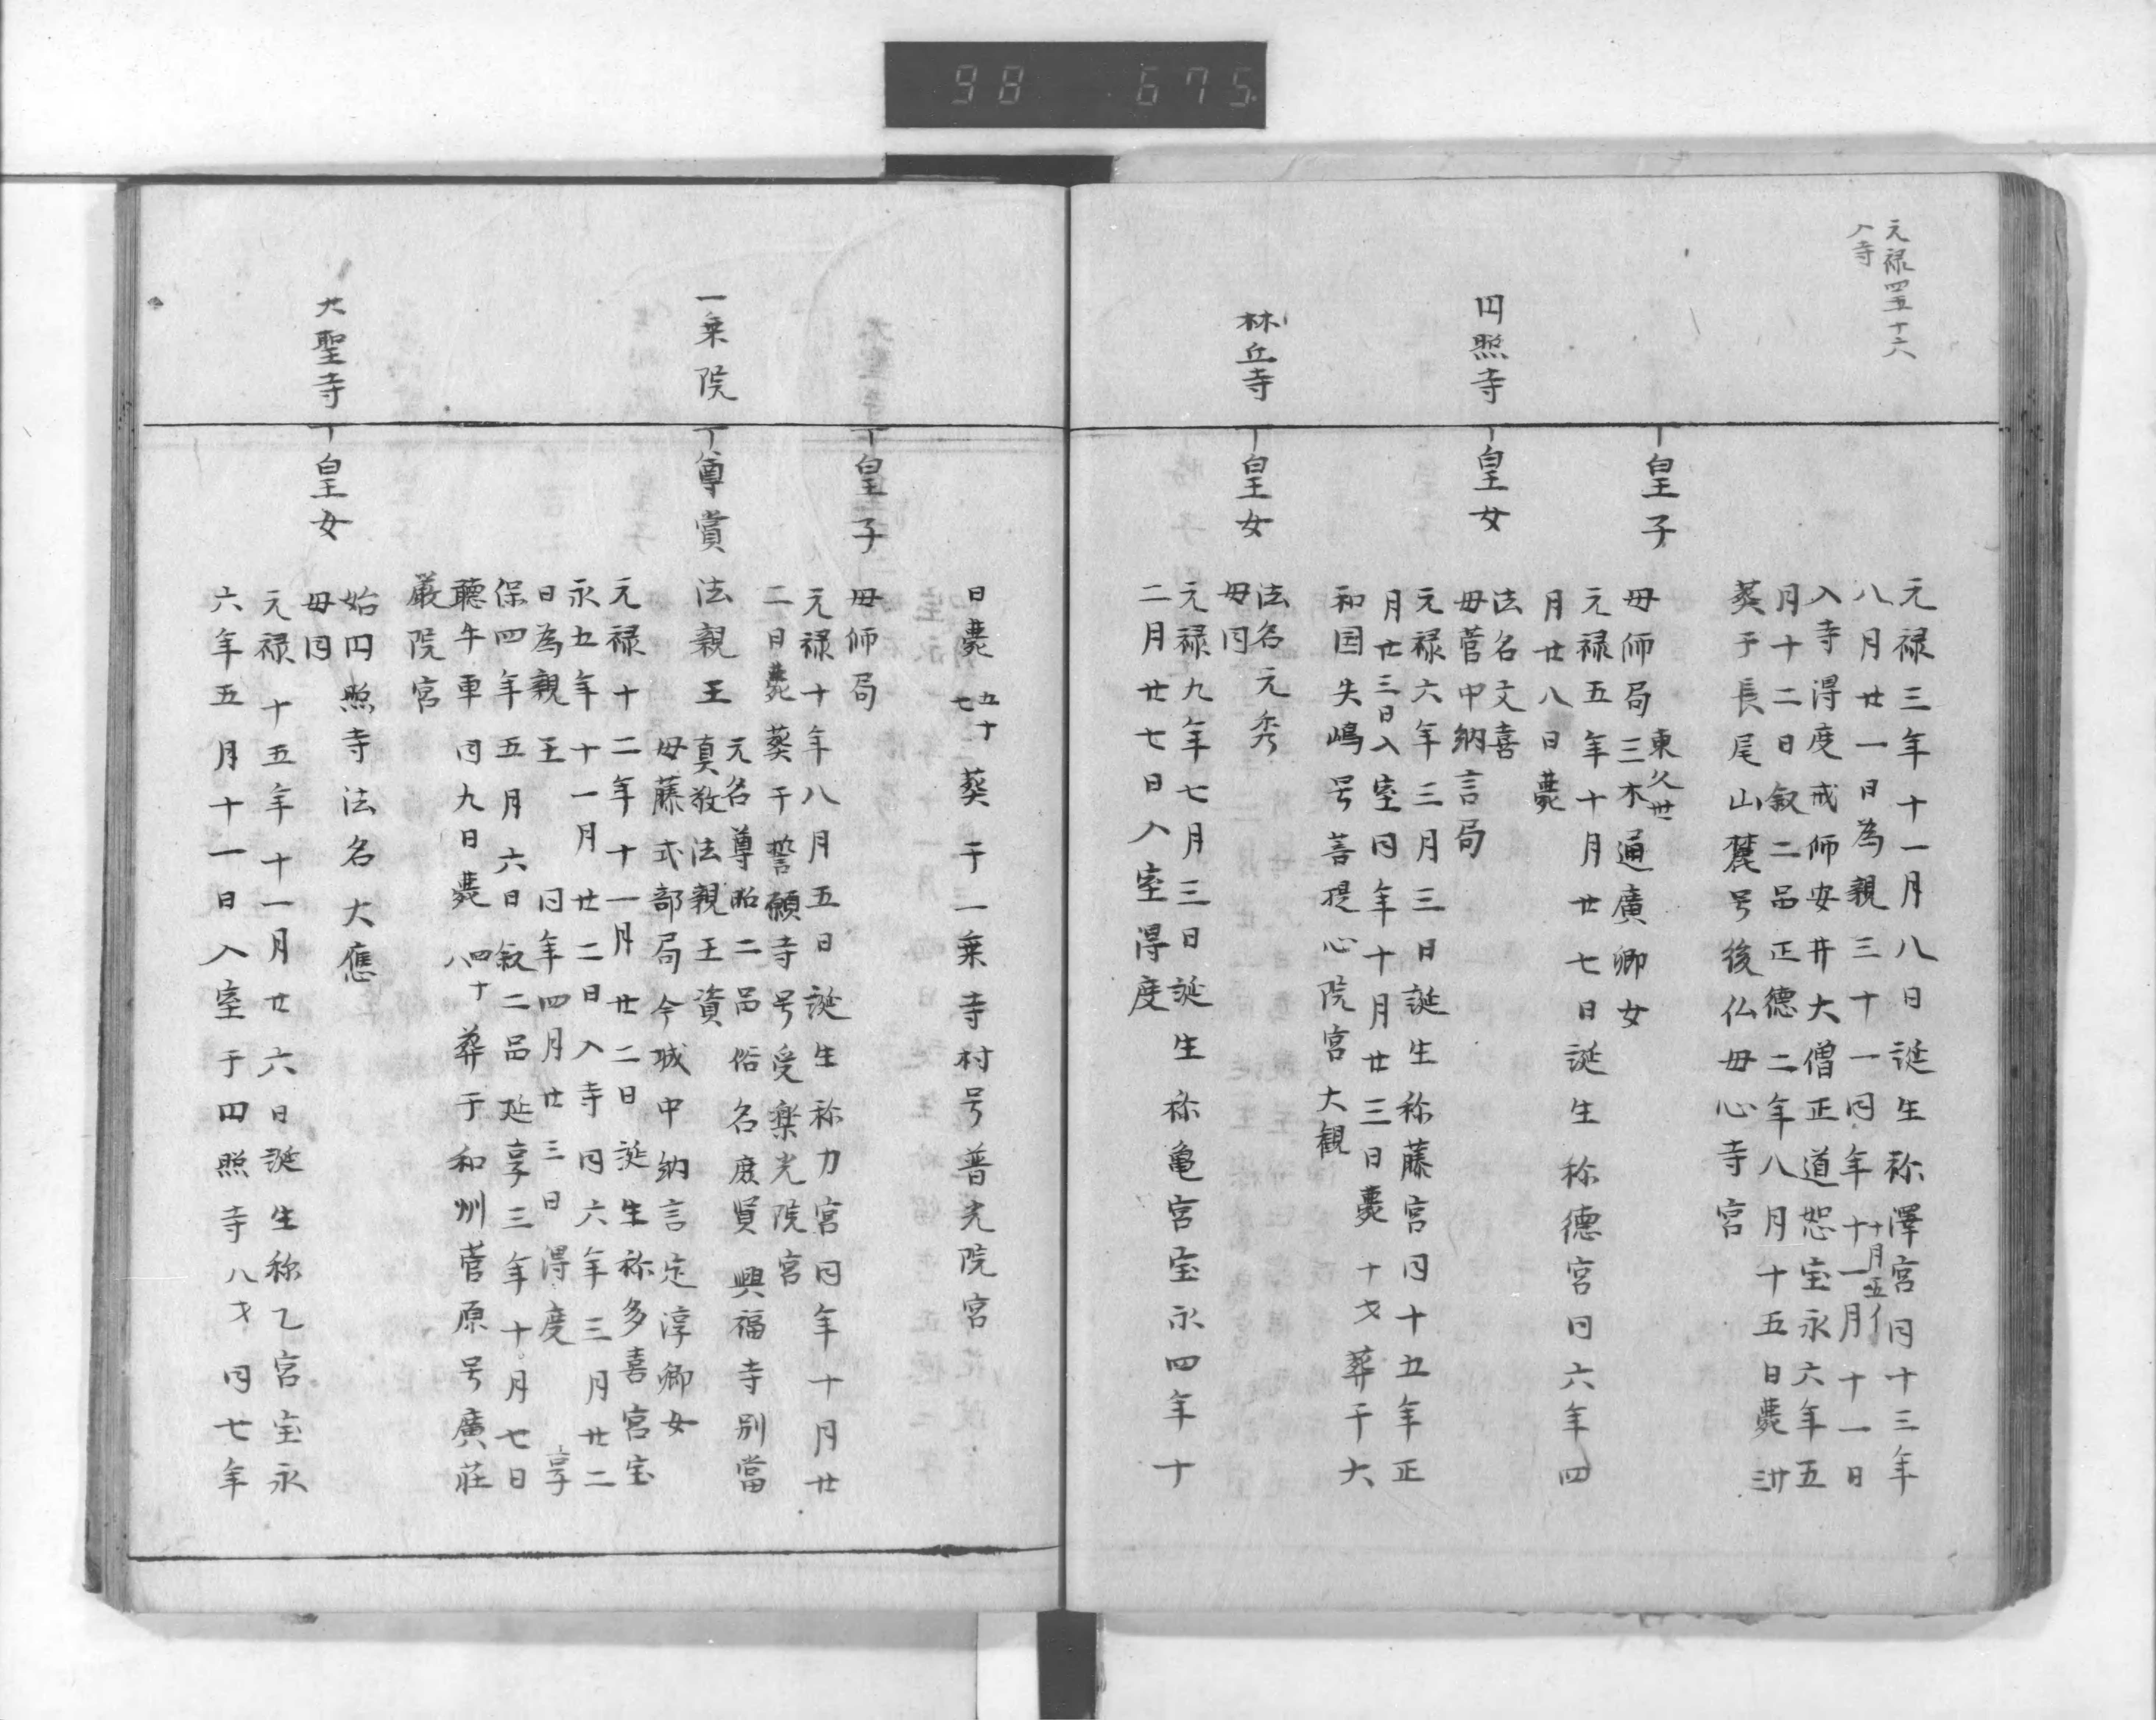 98 675
元禄四五十六
入寺
元禄三年十一月八日誕生称澤宮同十三年
八月廿一日為親三十一同年十一月十一日
十月五イ
入寺得度戒師安井大僧正道恕宝永六年五
月十二日叙二品正徳二年八月十五日薨
葬于長尾山麓号後仏母心寺宮
皇子
母師局三木通廣卿女
東久世
元禄五年十月廿七日誕生称徳宮同六年四
月廿八日薨
円照寺
皇女
法名文喜
母菅中納言局
元禄六年三月三日誕生称藤宮同十五年正
月廿三日入室同年十月廿三日薨十才葬于大
和国矢嶋号菩提心院宮大観
林丘寺
皇女
法名元秀
母同
元禄九年七月三日誕生称亀宮宝永四年十
二月廿七日入室得度
日薨
五十七
葬于一乗寺村号普光院宮
皇子
母師局
元禄十年八月五日誕生称力宮同年十月廿
二日薨葬于誓願寺号受楽光院宮
一乗院
尊賞法親王
元名尊昭二品俗名庶賢興福寺別當
真敬法親王資
母藤式部局今城中納言定淳卿女
元禄十二年十一月廿二日誕生称多喜宮宝
永五年十一月廿二日入寺同六年三月廿二
日為親王同年四月廿三日得度享
保四年五月六日叙二品延享三年十月七日
聴牛車同九日薨
四十八
葬于和州菅原号廣荘
厳院宮
大聖寺
皇女
始円照寺法名大應
母同
元禄十五年十一月廿六日誕生称乙宮宝永
六年五月十一日入室于円照寺八才同七年